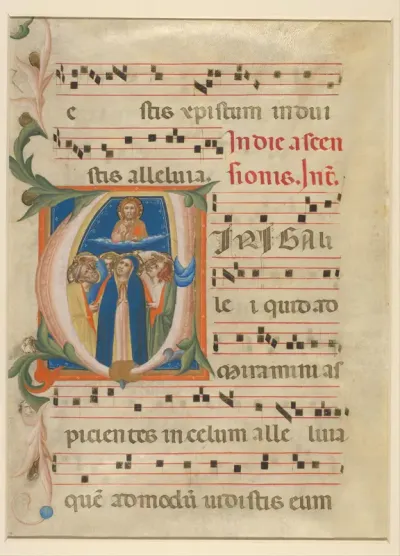 e stis xpistum indui
In die ascen
stis alleluia. sionis. Int̄.
VIRI GALI
le i quid ad
miramini as
picientes in celum alle luia
quē admodū vidistis eum